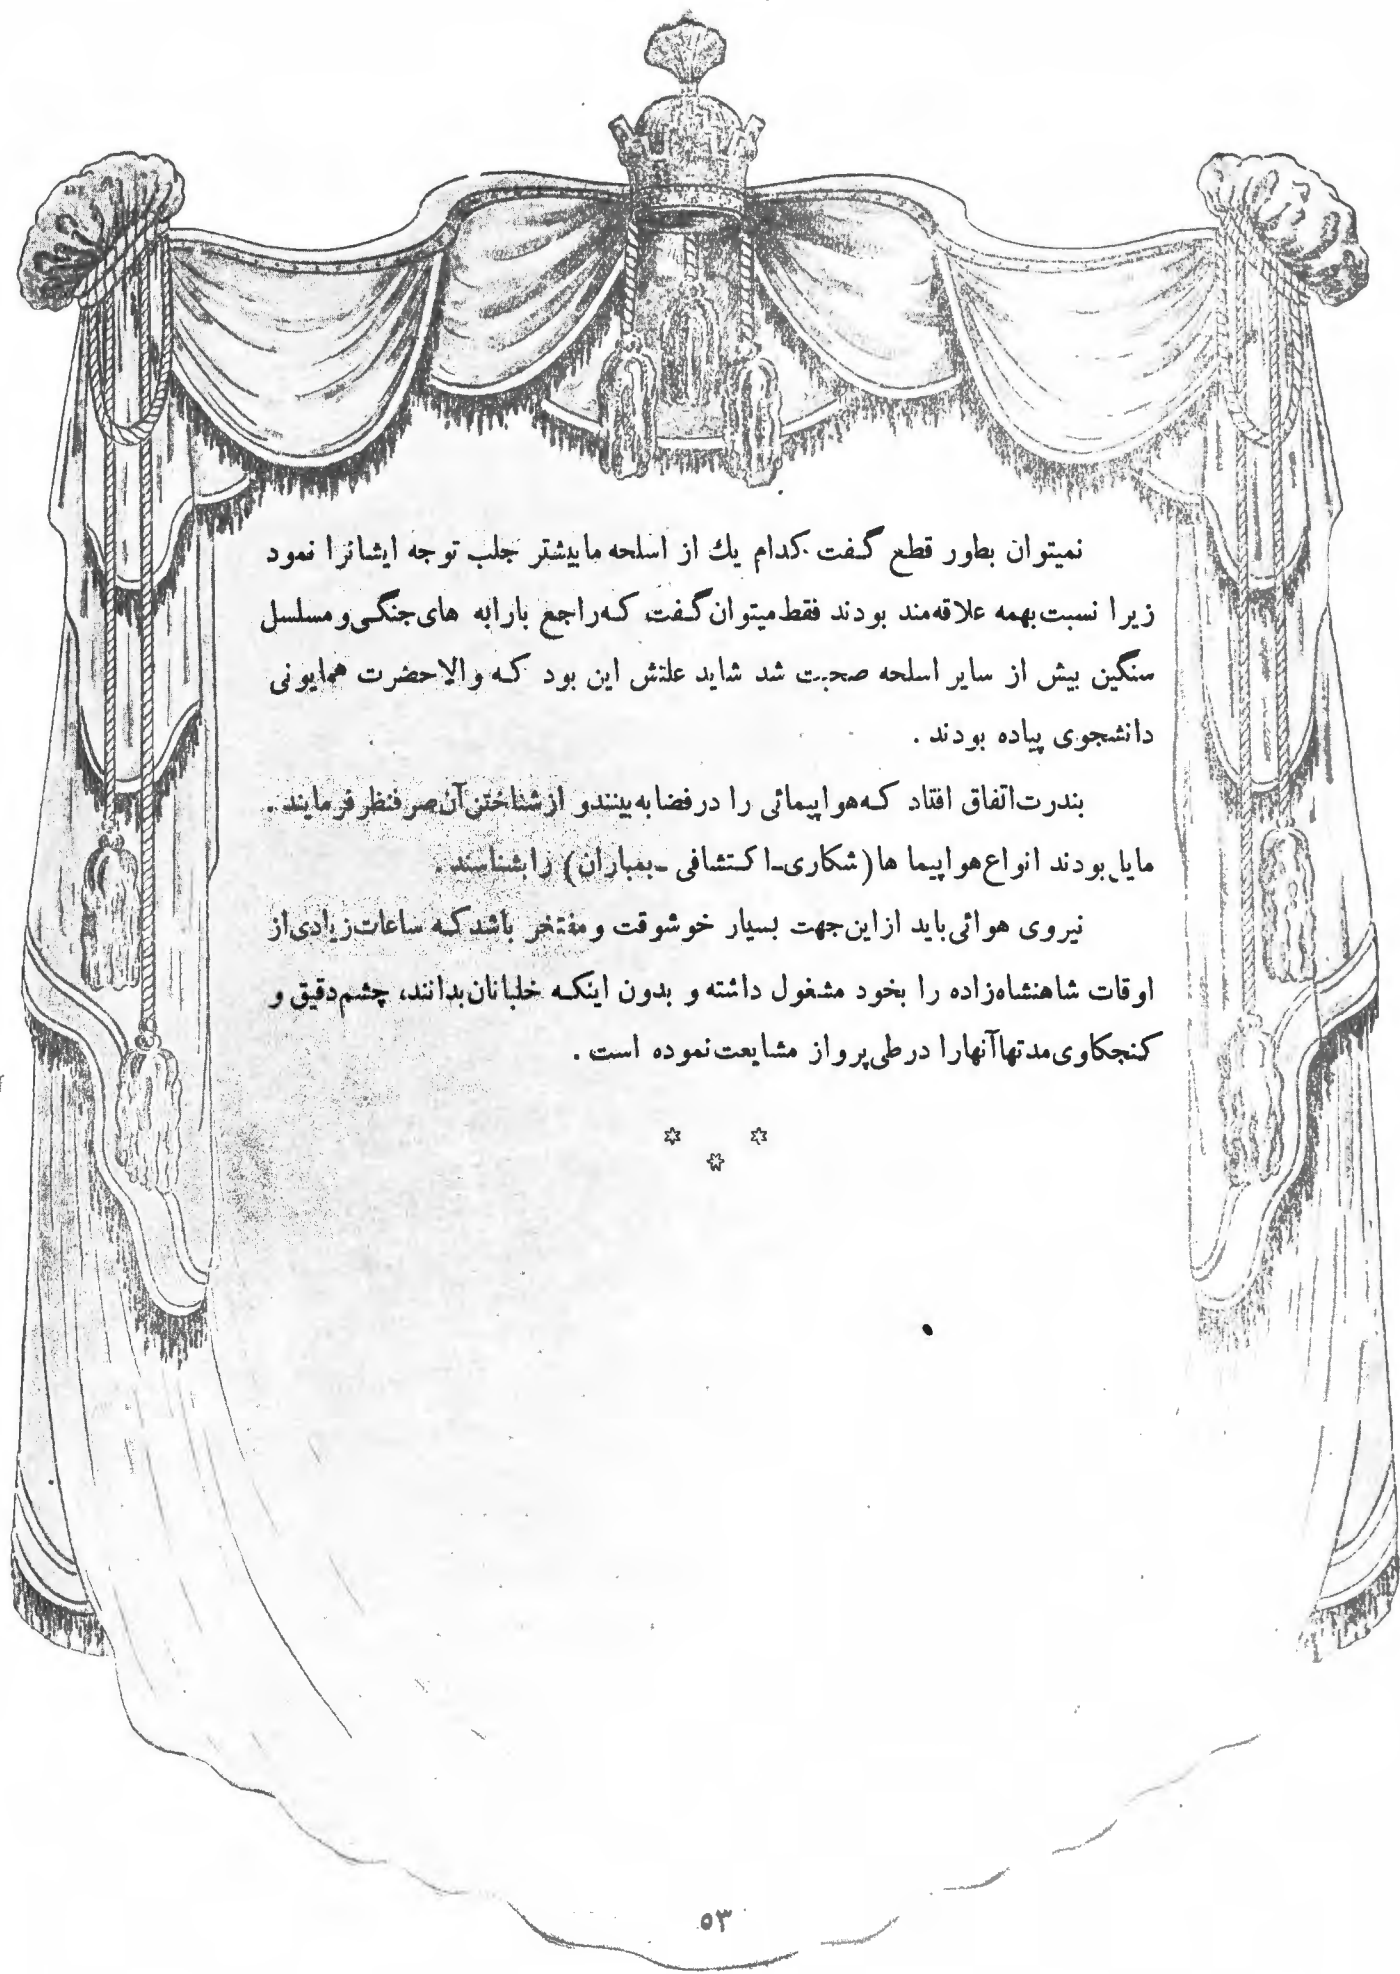 نمیتوان بطور قطع گفت کدام یك از اسلحه مابیشتر جلب توجه ایشانرا نمود
زیرا نسبت بهمه علاقه‌مند بودند فقط میتوان گفت که راجع بارابه های جنگی و مسلسل
سنگین بیش از سایر اسلحه صحبت شد شاید علتش این بود که والاحضرت همایونی
دانشجوی پیاده بودند .
بندرت اتفاق افتاد که هواپیمائی را در فضا به بینند و از شناختن آن صرفنظر فرمایند .
مایل بودند انواع هواپیما ها (شکاری ـ اکتشافی ـ بمباران) را بشناسند .
نیروی هوائی باید از این جهت بسیار خوشوقت و مفتخر باشد که ساعات زیادی از
اوقات شاهنشاه‌زاده را بخود مشغول داشته و بدون اینکه خلبانان بدانند، چشم دقیق و
کنجکاوی مدتها آنها را در طی پرواز مشایعت نموده است .
* * *
۵۳